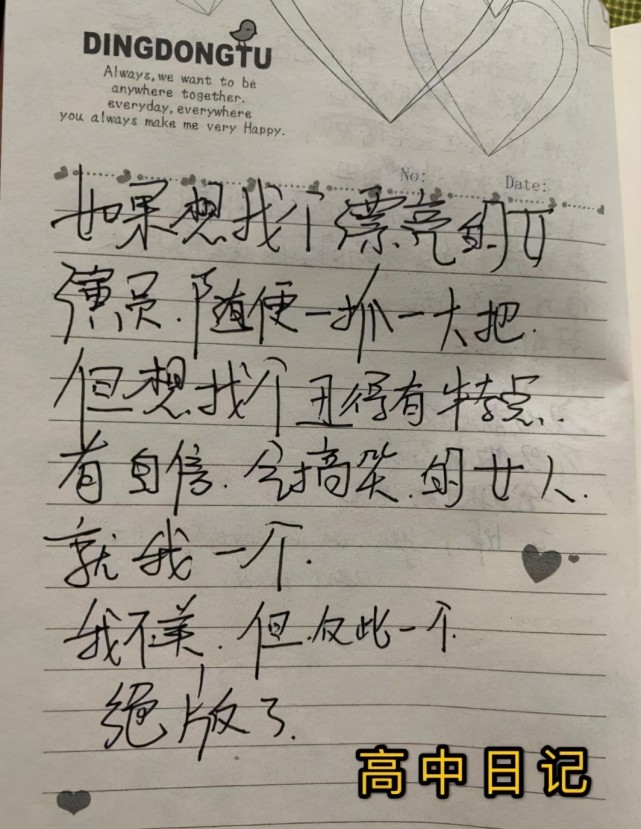 DINGDONGTU
Always, we want to be
anywhere together.
everyday, everywhere
you always make me very Happy.
No:
Date:
如果想找个漂亮的女
演员.随便一抓一大把.
但想找个丑得有特点..
有自信.会搞笑.的女人.
就我一个.
我不美.但仅此一个.
绝版了.
高中日记